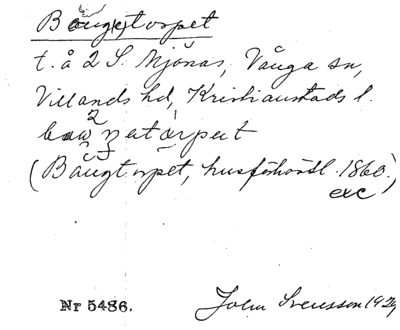 Baugtorpet
t. å 2 S. Mjönäs, Vånga sn,
Villands hd, Kristianstads l.
(Baugtorpet, husförhörsl. 1860.)
exc
Nr 5486.
John Svensson 1929